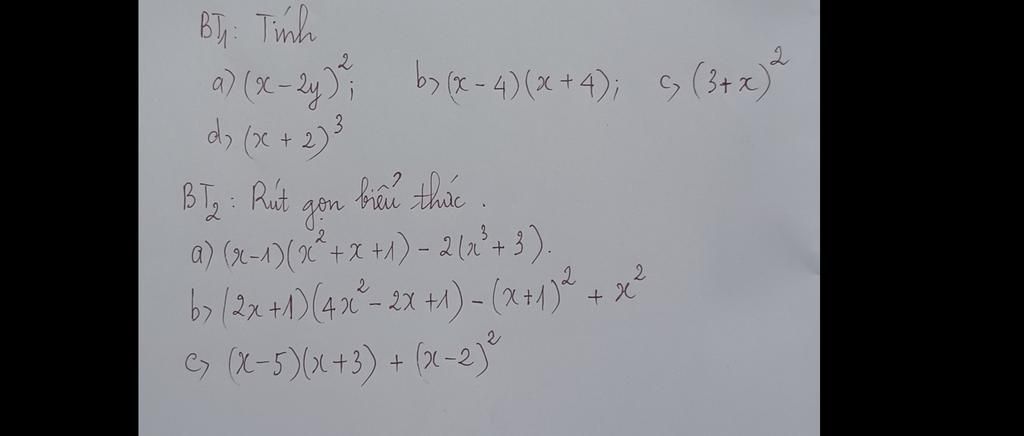 BT1: Tính
a) (x - 2y)²; b> (x - 4)(x + 4); c> (3 + x)²
d> (x + 2)³
BT2: Rút gọn biểu thức.
a) (x-1)(x² + x + 1) - 2(x³ + 3).
b> (2x + 1)(4x² - 2x + 1) - (x+1)² + x²
c> (x - 5)(x + 3) + (x - 2)²